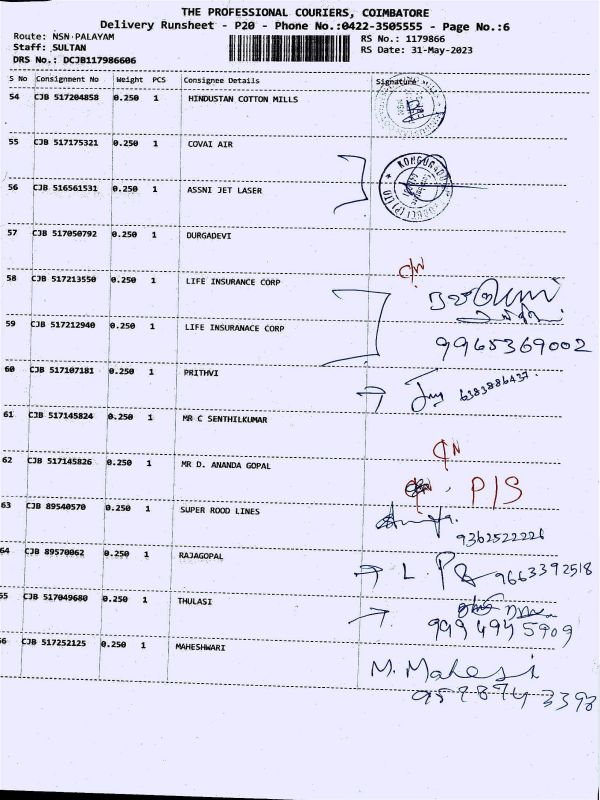 THE PROFESSIONAL COURIERS, COIMBATORE
Delivery Runsheet - P20 - Phone No.:0422-3505555 - Page No.:6
Route: NSN PALAYAM
RS No.: 1179866
Staff: SULTAN
RS Date: 31-May-2023
DRS No.: DCJB117986606
S No Consignment No Weight PCS Consignee Details Signature
54 CJB 517204858 0.250 1 HINDUSTAN COTTON MILLS
55 CJB 517175321 0.250 1 COVAI AIR
56 CJB 516561531 0.250 1 ASSNI JET LASER
57 CJB 517050792 0.250 1 DURGADEVI
58 CJB 517213550 0.250 1 LIFE INSURANCE CORP
59 CJB 517212940 0.250 1 LIFE INSURANACE CORP
9965369002
60 CJB 517107181 0.250 1 PRITHVI
6383886437
61 CJB 517145824 0.250 1 MR C SENTHILKUMAR
62 CJB 517145826 0.250 1 MR D. ANANDA GOPAL
P/S
63 CJB 89540570 0.250 1 SUPER ROOD LINES
9362522226
64 CJB 89570062 0.250 1 RAJAGOPAL
9663392518
55 CJB 517049680 0.250 1 THULASI
9994945909
56 CJB 517252125 0.250 1 MAHESHWARI
M. Mahesi